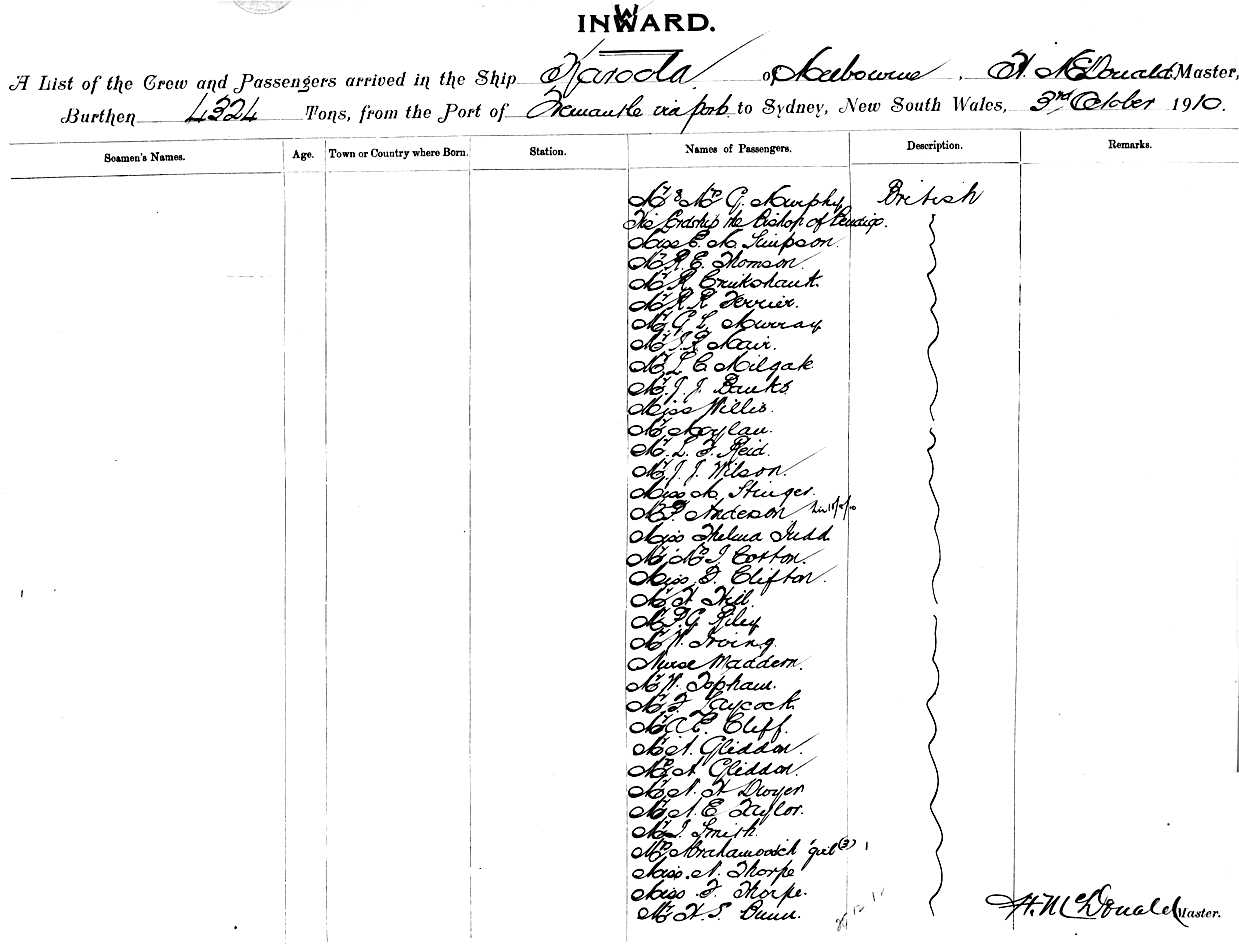 INWARD.
A List of the Crew and Passengers arrived in the Ship Karoola of Melbourne, H. McDonald Master,
Burthen 4324 Tons, from the Port of Fremantle via ports to Sydney, New South Wales, 3rd October 1910.
Seamen's Names. Age. Town or Country where Born. Station. Names of Passengers. Description. Remarks.
Mr & Mrs G. Murphy British
His Lordship the Bishop of Bendigo.
Miss E. M. Simpson.
Mr R. E. Thomson.
Mr R. Cruikshank.
Mr R R Ferrier.
Mr G L Murray
Mr J. F. Mair.
Mr L C Milgate
Mr J. J. Banks
Miss Willis.
Mr Moylan.
Mr L. F. Reid.
Mr J. J. Wilson.
Miss M. Stringer.
Mr P. Anderson
Miss Thelma Judd
Mr Mrs J. Cotton.
Miss D. Clifton.
Mr H. Hill.
Mr P. G. Riley
Mr W. Irving.
Nurse Maddern.
Mr W. Topham.
Mr F. Laycock
Mr A E. Cliff.
Mr A. Gliddon.
Mrs A. Gliddon.
Mr N. H Dwyer
Mr N. E. Taylor.
Mr J. Smith.
Mrs (3)
Miss. N. Thorpe
Miss F. Thorpe.
Mr H. S. Bunn.
H. McDonald Master.